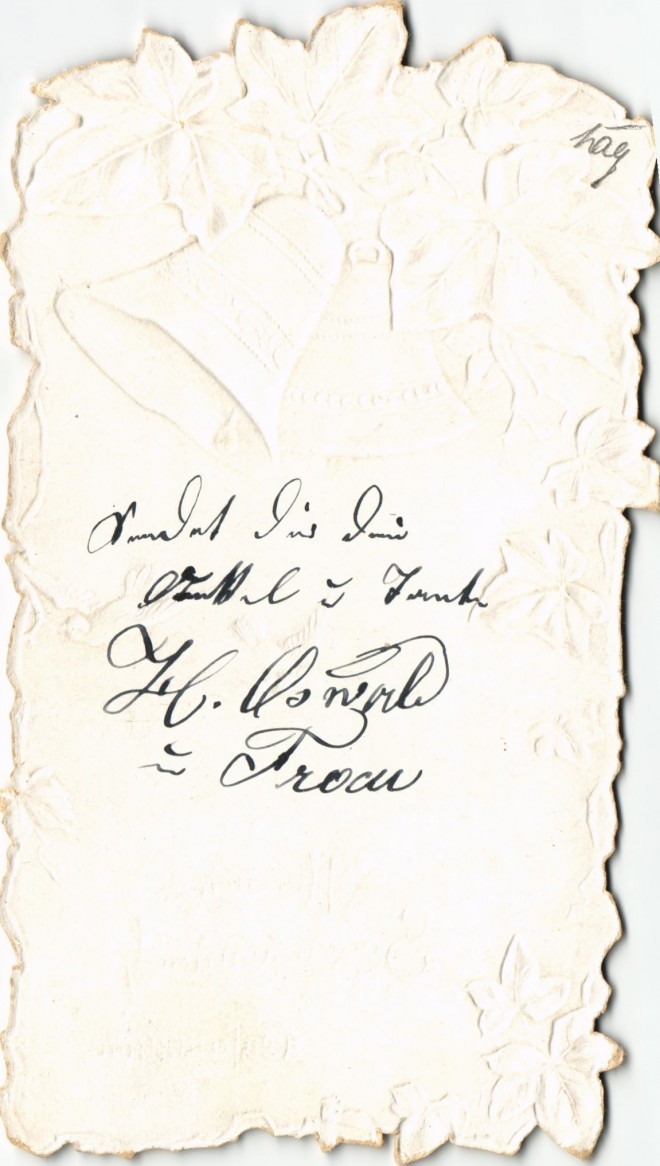 Sendet Dir Dein
Onkel u Tante
H. Oswald
u Frau